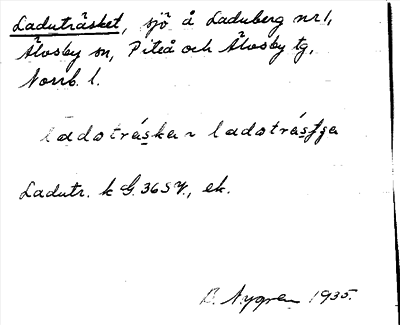 Laduträsket, sjö å Laduberg nr 1,
Älvsby sn, Piteå och Älvsby tg,
Norrb. l.
ladoträskar ladoträsſja
Ladutr. k G. 365 V., ek.
B. Nygren 1935.